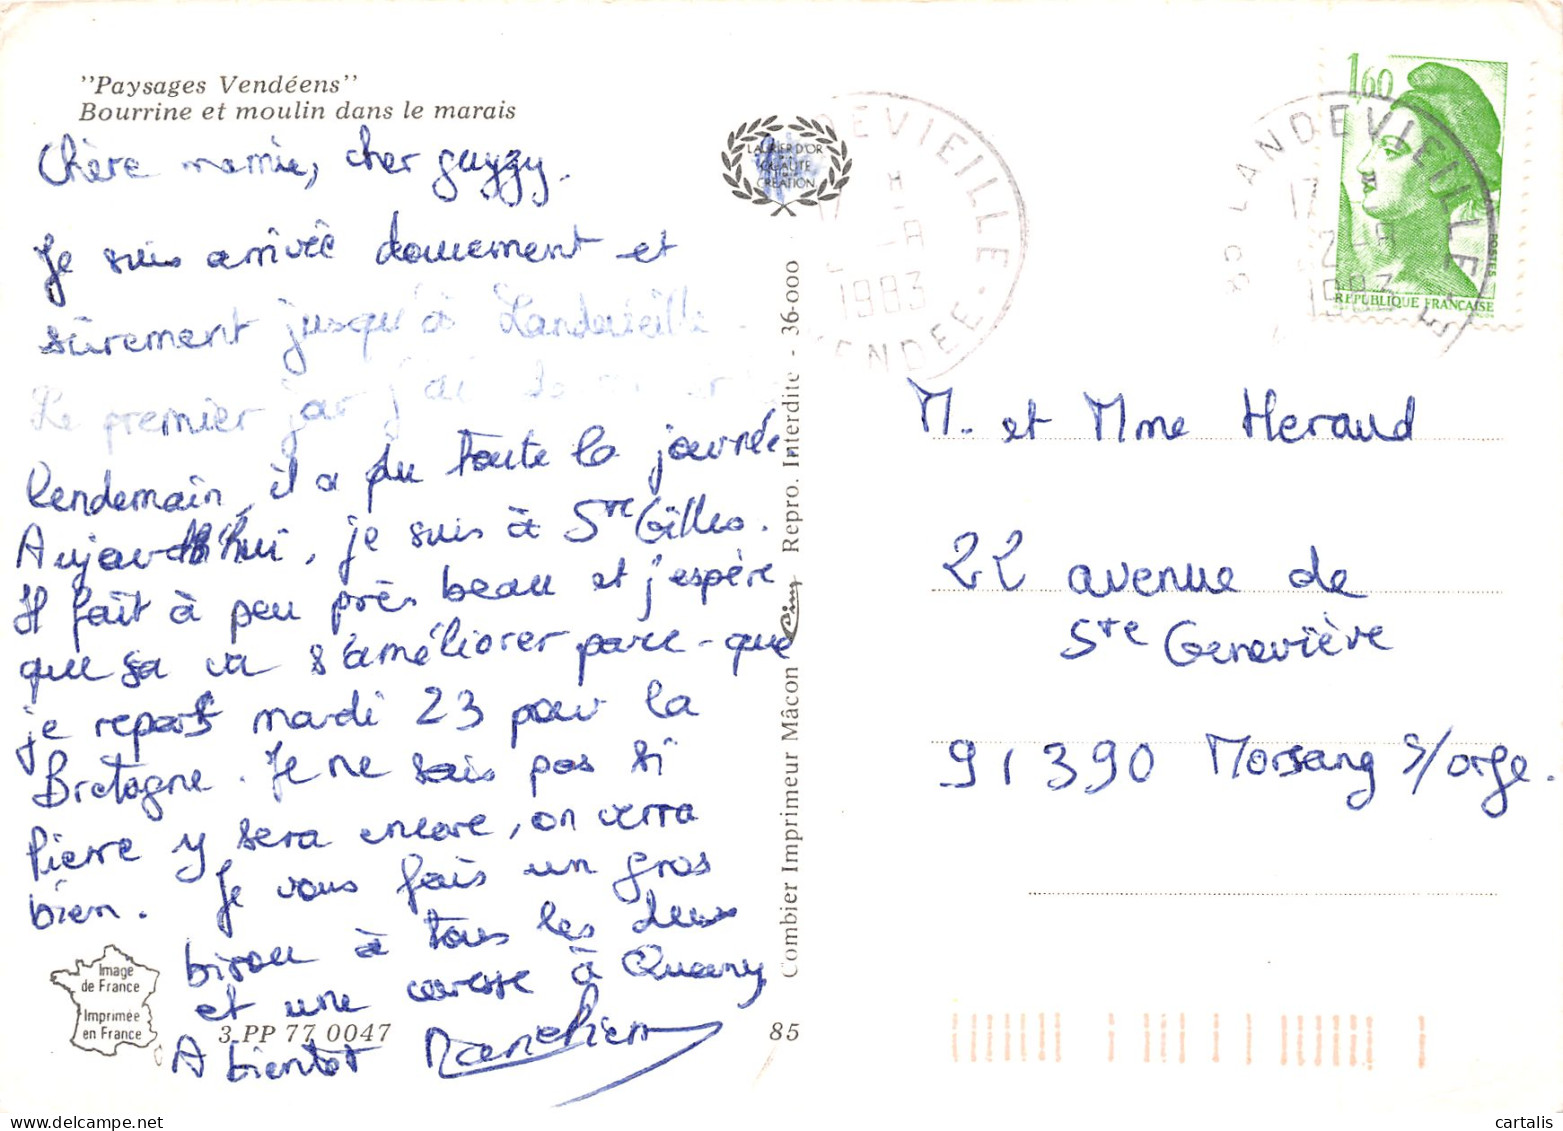 "Paysages Vendéens"
Bourrine et moulin dans le marais
Chère mamie, cher guyzy.
Je suis arrivée doucement et
sûrement jusqu'à Landevieille.
Le premier jour j'ai
lendemain, il a plu toute la journée.
Aujourd'hui, je suis à St Gilles.
Il fait à peu près beau et j'espère
que sa va s'améliorer parce-que
je repars mardi 23 pour la
Bretagne. Je ne sais pas si
Pierre y sera encore, on verra
bien. Je vous fais un gros
bisou à tous les deux
et une caresse à
A bientot
Image
de France
Imprimée
en France
3.PP 77 0047
85
Combier Imprimeur Mâcon Cim Repro. Interdite - 36-000
LAURIER D'OR
QUALITÉ
CRÉATION
DEVIEILLE
1983
VENDEE
85 LANDEVIEILLE
17 H
1983
1,60
POSTES
REPUBLIQUE FRANÇAISE
M. et Mme Heraud
22 avenue de
Ste Geneviève
91390 Morsang s/orge.
cartalis